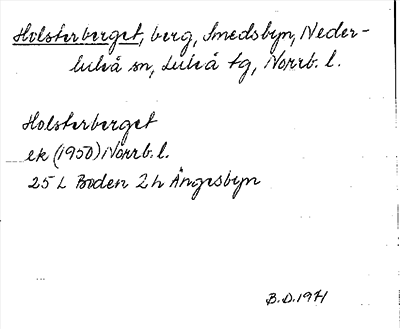 Holsterberget, berg, Smedsbyn, Neder-
luleå sn, Luleå tg, Norrb. l.
Holsterberget
ek (1950) Norrb. l.
25 L Boden 2 h Ängesbyn
B. D. 1971